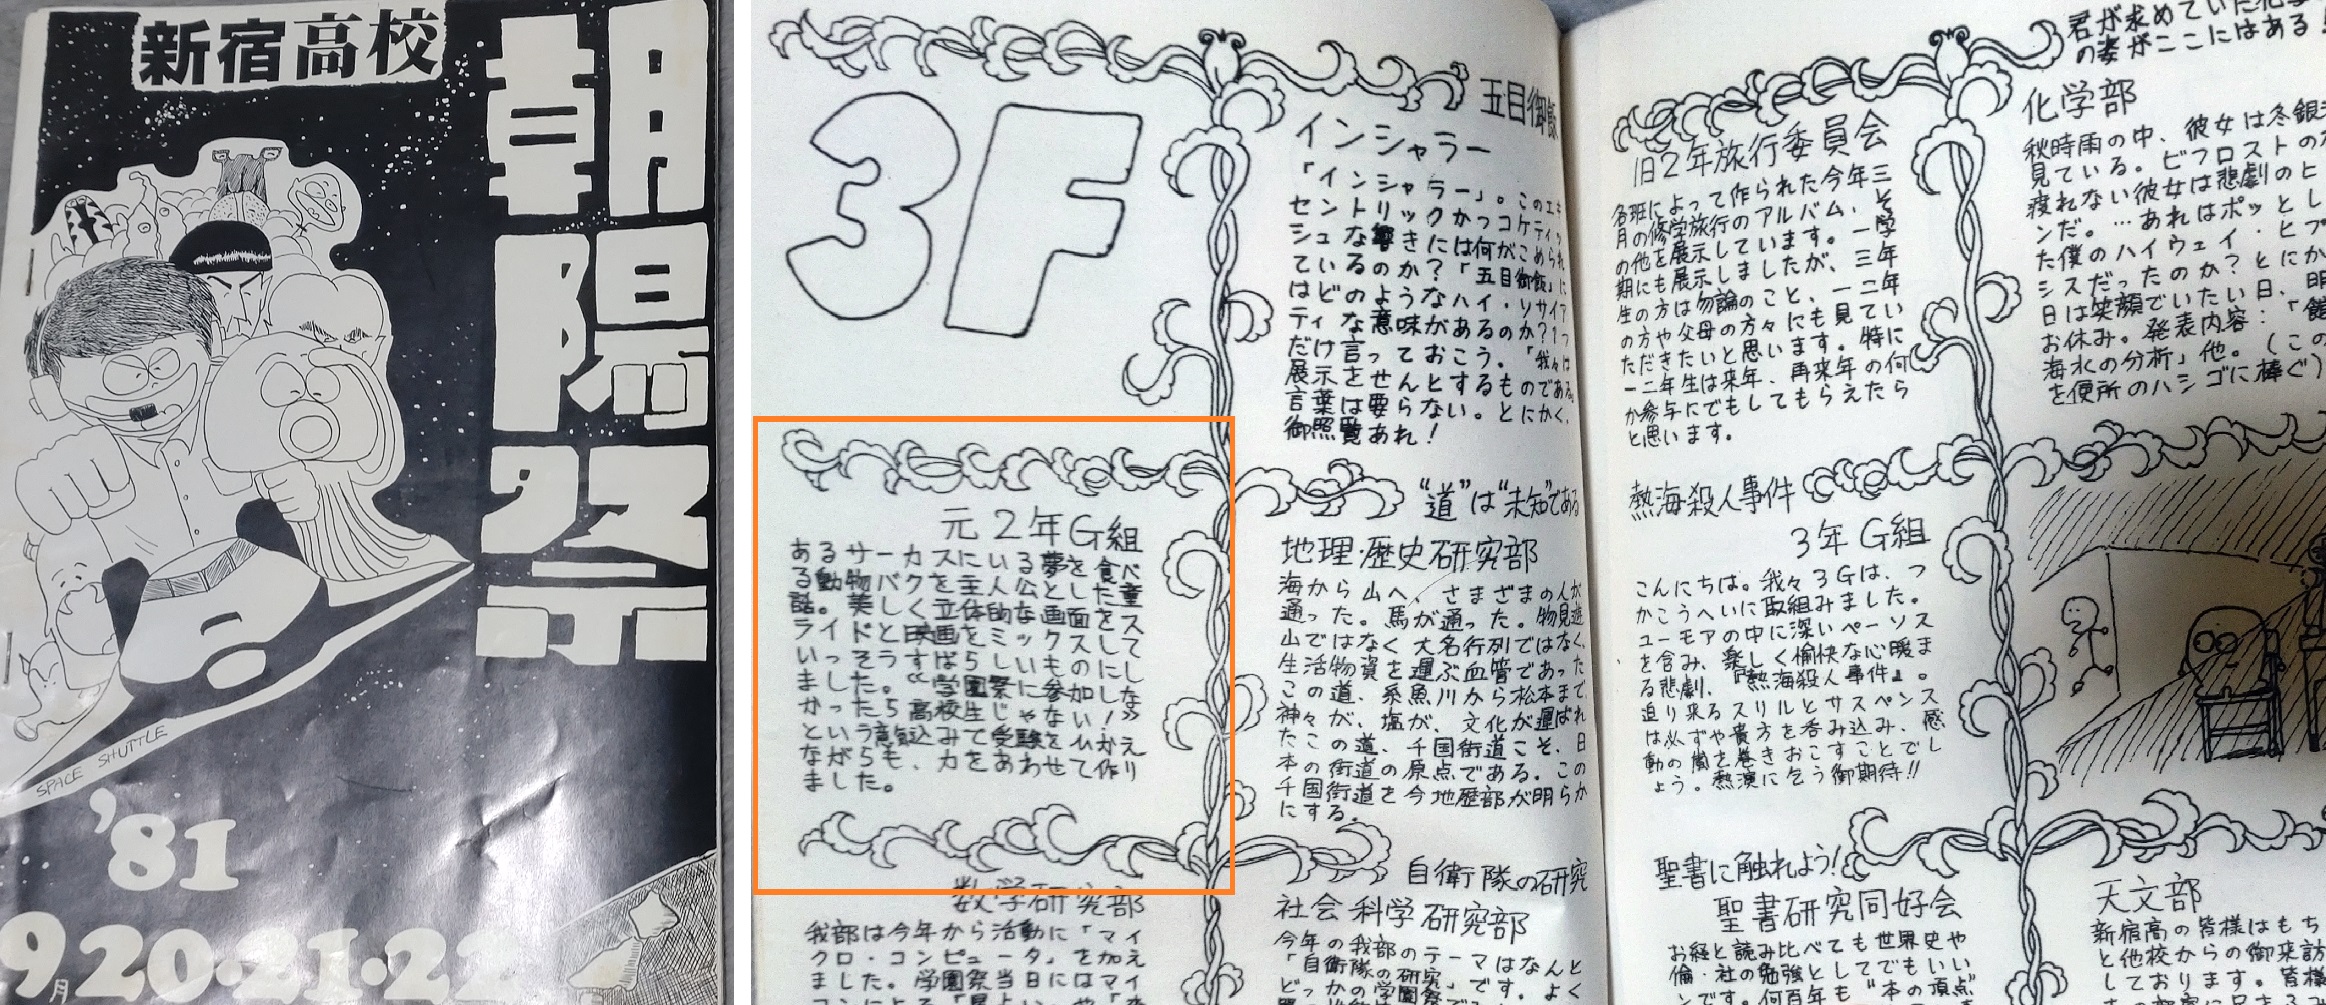 新宿高校
朝陽祭
SPACE SHUTTLE
'81
9月20・21・22
3F
五目御飯
インシャラー
「インシャラー」。このエキ
セントリックかつコケティッ
シュな響きには何がこめられ
ているのか?「五目御飯」に
はどのようなハイ・ソサイア
ティな意味があるのか?1つ
だけ言っておこう。「我々は
展示をせんとするものである。
言葉は要らない。とにかく、
御照覧あれ!
元2年G組
あるサーカスにいる夢を食べ
る動物バクを主人公とした童
話。美しく立体的な画面をス
ライドと映画をミックスして
いっそうすばらしいものにし
ました。“学園祭に参加しな
かったら高校生じゃない!”
という意気込みで受験をひかえ
ながらも、力をあわせて作り
ました。
“道”は“未知”である
地理・歴史研究部
海から山へ、さまざまの人が
通った。馬が通った。物見遊
山ではなく大名行列ではなく、
生活物資を運ぶ血管であった
この道、糸魚川から松本まで、
神々が、塩が、文化が運ばれ
たこの道、千国街道こそ、日
本の街道の原点である。この
千国街道を今地歴部が明らか
にする。
数学研究部
我部は今年から活動に「マイ
クロ・コンピュータ」を加え
ました。学園祭当日にはマイ
自衛隊の研究
社会科学研究部
今年の我部のテーマはなんと
「自衛隊の研究」です。よく
旧2年旅行委員会
各班によって作られた今年三
月の修学旅行のアルバム、そ
の他を展示しています。一学
期にも展示しましたが、三年
生の方は勿論のこと、一二年
の方や父母の方々にも見てい
ただきたいと思います。特に
一二年生は来年、再来年の何
か参与にでもしてもらえたら
と思います。
君が求めていた化学
の姿がここにはある!
化学部
秋時雨の中、彼女は冬銀
見ている。ビフロストの
渡れない彼女は悲劇のヒ
ンだ。…あれはポッとし
た僕のハイウェイ・ヒプ
シスだったのか?とにか
日は笑顔でいたい日、明
お休み。発表内容:「館
海水の分析」他。(この
を便所のハシゴに捧ぐ)
熱海殺人事件
3年G組
こんにちは。我々3Gは、つ
かこうへいに取組みました。
ユーモアの中に深いペーソス
を含み、楽しく愉快な心暖ま
る悲劇、『熱海殺人事件』。
迫り来るスリルとサスペンス
は必ずや貴方を呑み込み、感
動の嵐を巻きおこすことでし
ょう。熱演に乞う御期待!!
聖書に触れよう!
聖書研究同好会
お経と読み比べても世界史や
倫・社の勉強としてでもいい
ンです。何百年も“本の頂点
天文部
新宿高の皆様はもち
と他校からの御来訪
しております。皆様